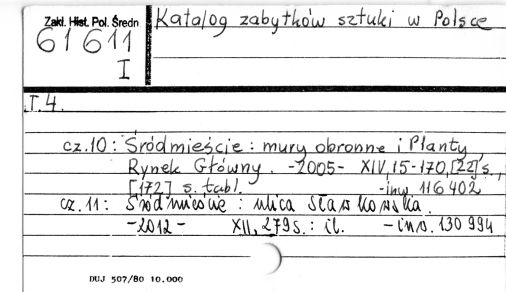 Zakł. Hist. Pol. Średn
61611
I
Katalog zabytków sztuki w Polsce
T.4.
cz.10: Śródmieście: mury obronne i Planty,
Rynek Główny. -2005- XIV, 15-170, [22] s.,
[172] s. tabl. -inw. 116402
cz.11: Śródmieście: ulica Sławkowska.
-2012- XII, 279 s.: il. -inw. 130 994
DUJ 507/80 10.000